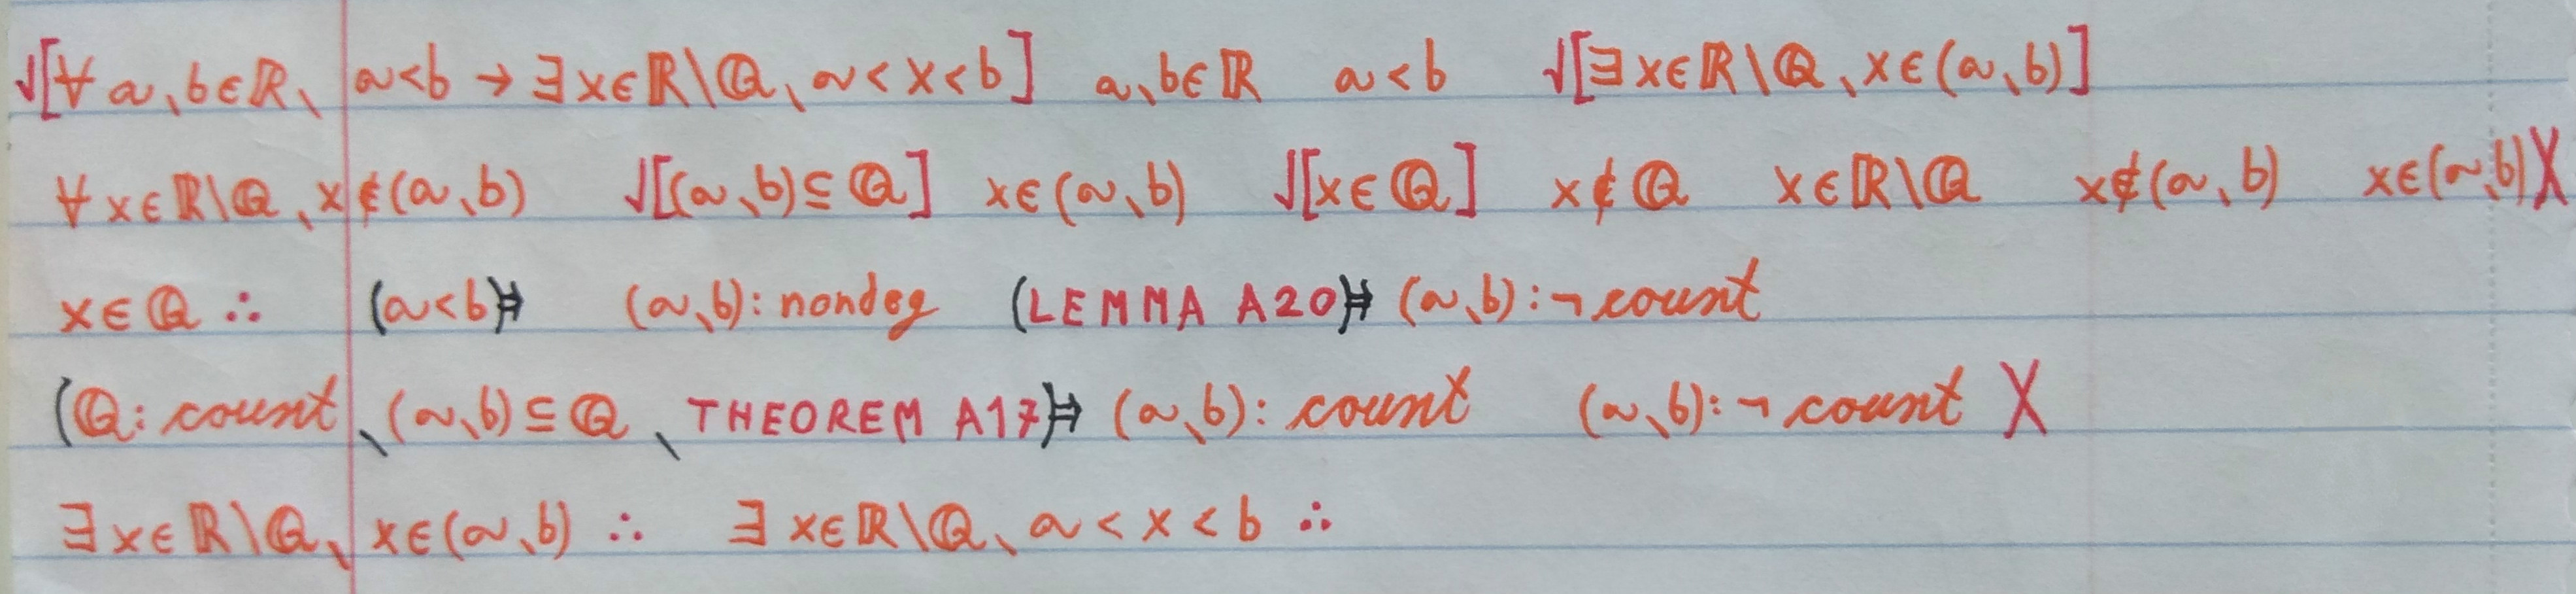 √[∀ a、b∈ℝ、 a<b → ∃ x∈ℝ\ℚ、a<x<b] a、b∈ℝ a<b √[∃ x∈ℝ\ℚ、x∈(a、b)]
∀ x∈ℝ\ℚ、x∉(a、b) √[(a、b)⊆ℚ] x∈(a、b) √[x∈ℚ] x∉ℚ x∈ℝ\ℚ x∉(a、b) x∈(a、b) X
x∈ℚ ∴ (a<b)⤇ (a、b): nondeg (LEMMA A20)⤇ (a、b):¬count
(ℚ: count、(a、b)⊆ℚ、THEOREM A17)⤇ (a、b): count (a、b):¬count X
∃ x∈ℝ\ℚ、x∈(a、b) ∴ ∃ x∈ℝ\ℚ、a<x<b ∴